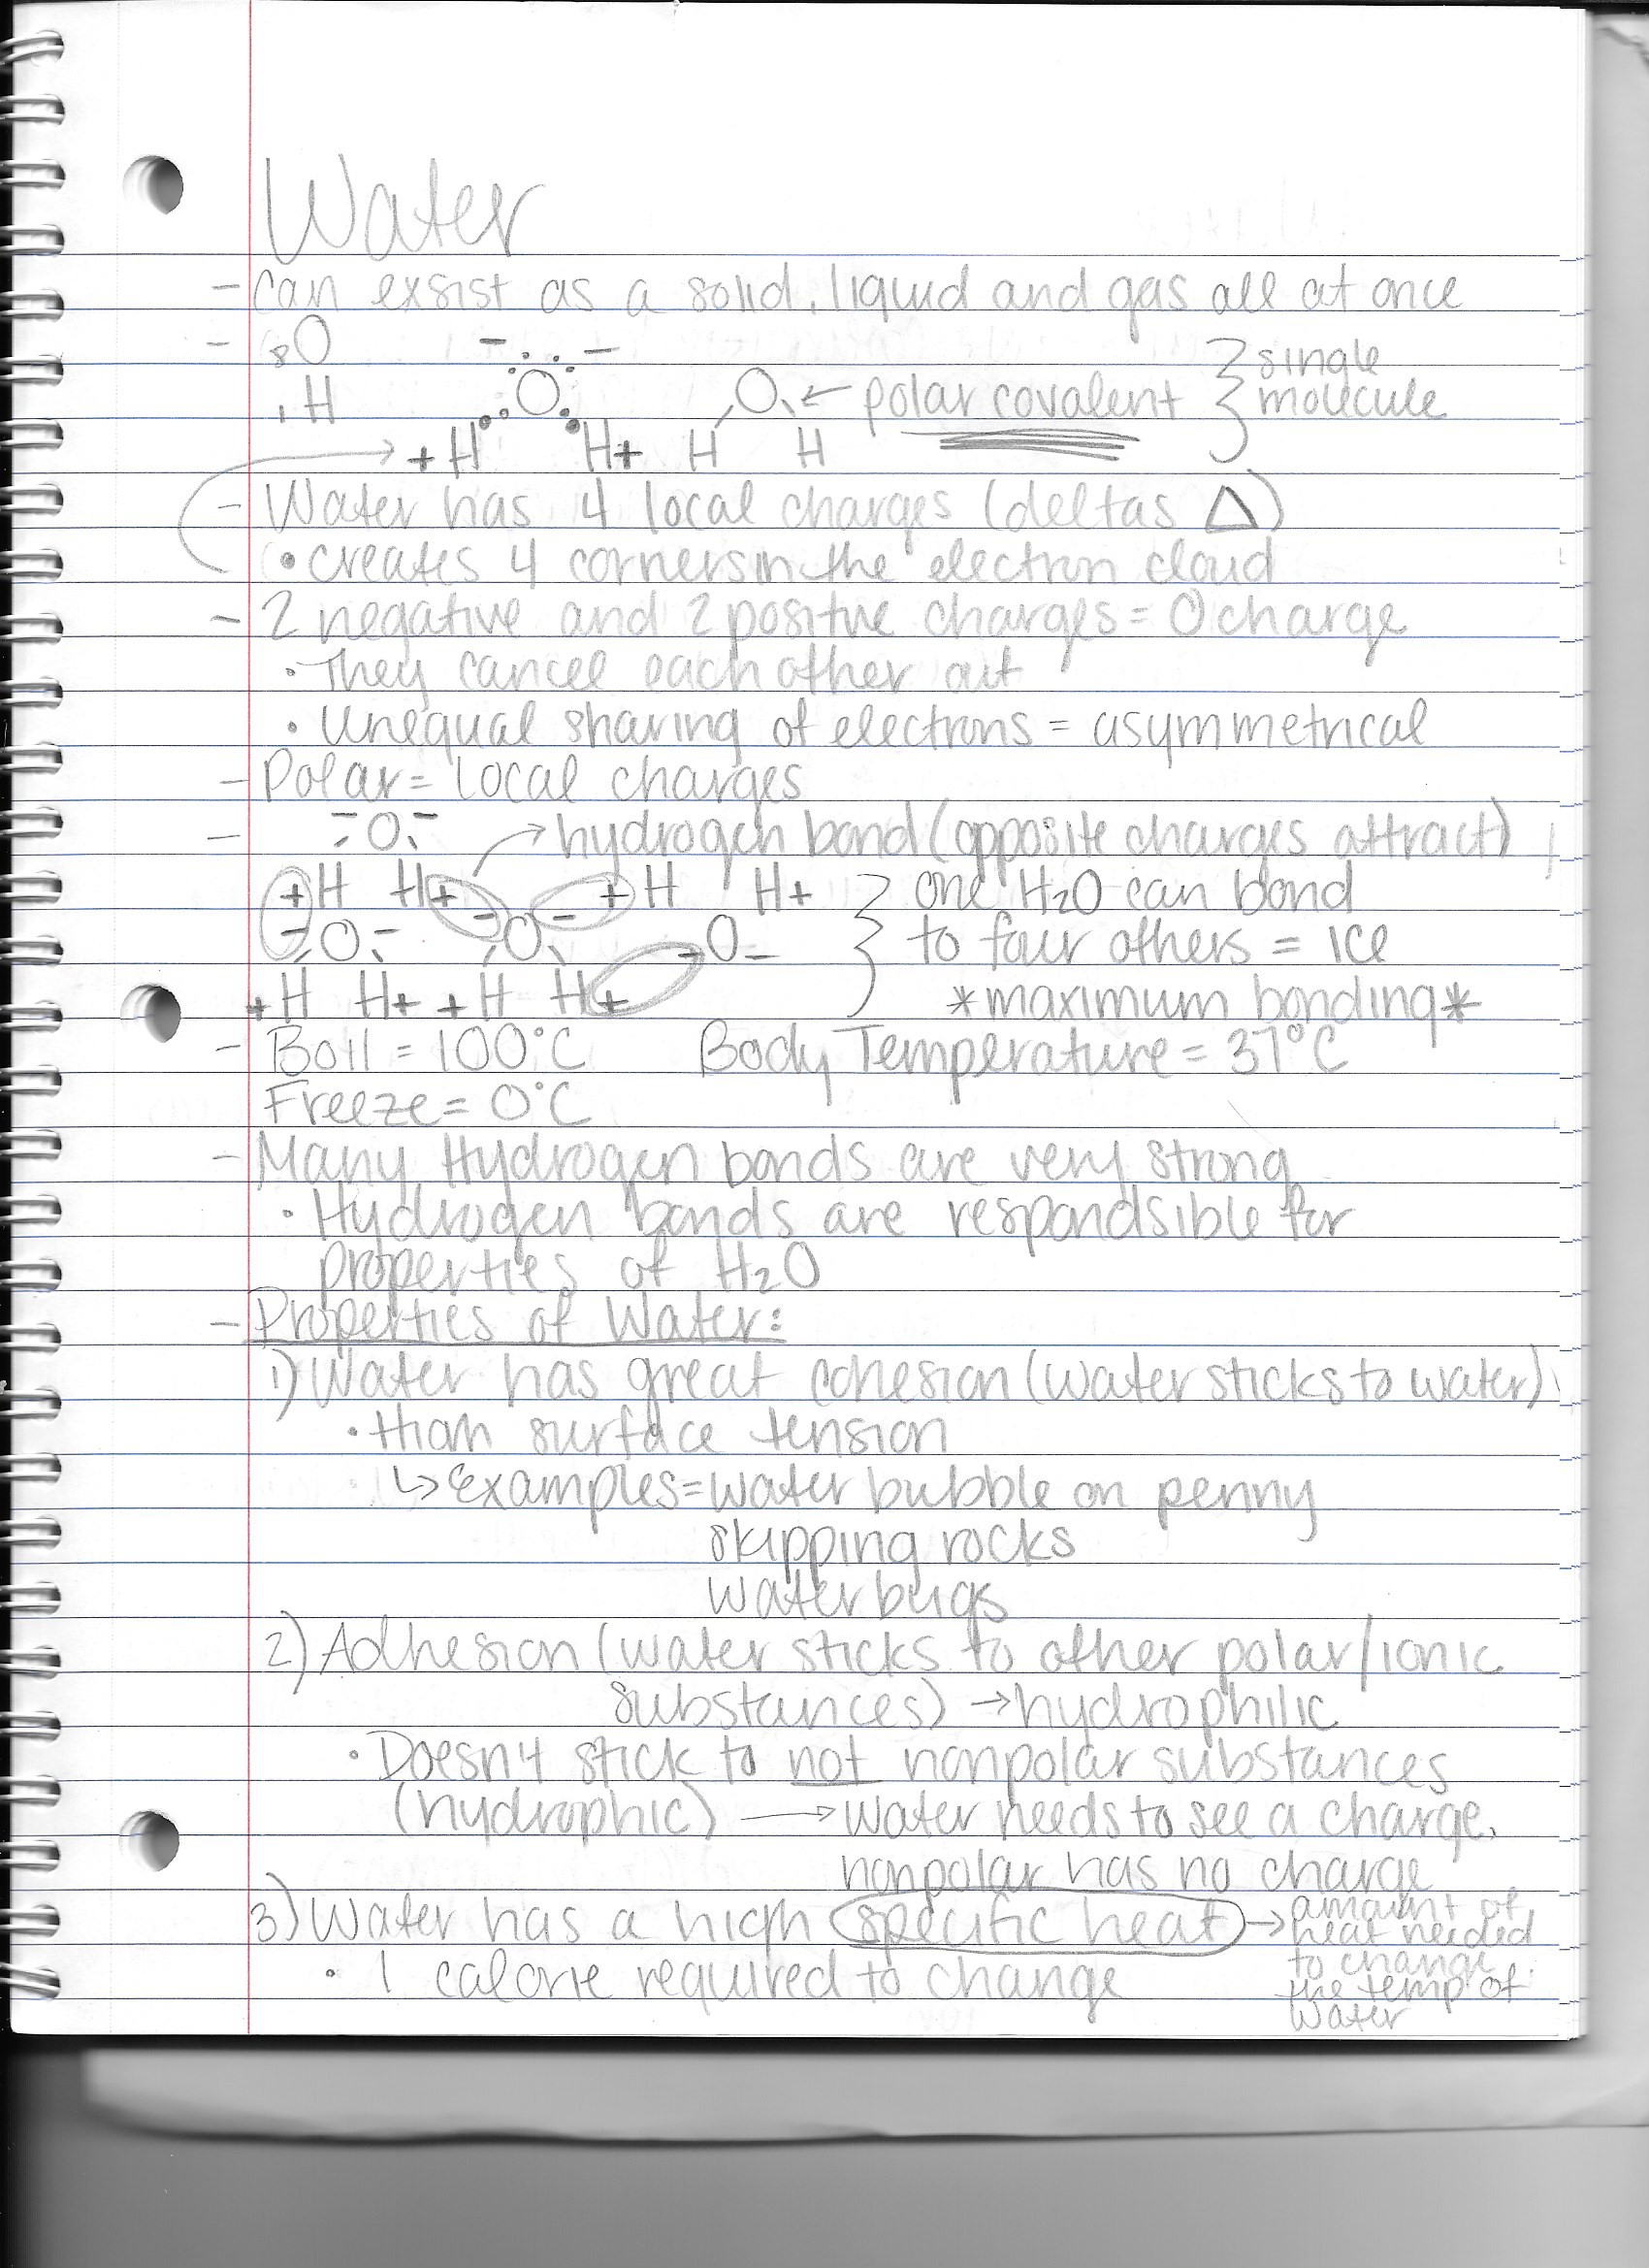 Water
- can exsist as a solid, liquid and gas all at once
- 8O
1H
- -
O
+H H+
O ← polar covalent
H H
} single molecule
- Water has 4 local charges (deltas △)
• creates 4 corners in the electron cloud
- 2 negative and 2 positive charges = 0 charge
• They cancel each other out
• unequal sharing of electrons = asymmetrical
- Polar = local charges
- -O- → hydrogen bond (opposite charges attract)
+H H+ - +H H+ } one H2O can bond
-O- O -O- to four others = ICE
+H H+ +H H+ *maximum bonding*
- Boil = 100°C Body Temperature = 37°C
Freeze = 0°C
- Many Hydrogen bonds are very strong
• Hydrogen bonds are respondsible for
properties of H2O
- Properties of Water:
1) Water has great cohesion (water sticks to water)
• High surface tension
↳ examples = water bubble on penny
skipping rocks
water bugs
2) Adhesion (water sticks to other polar/ionic
substances) → hydrophilic
• Doesn't stick to not nonpolar substances
(hydrophic) → water needs to see a charge.
nonpolar has no charge
3) Water has a high specific heat → amount of
heat needed
to change
the temp of
water
• 1 calorie required to change